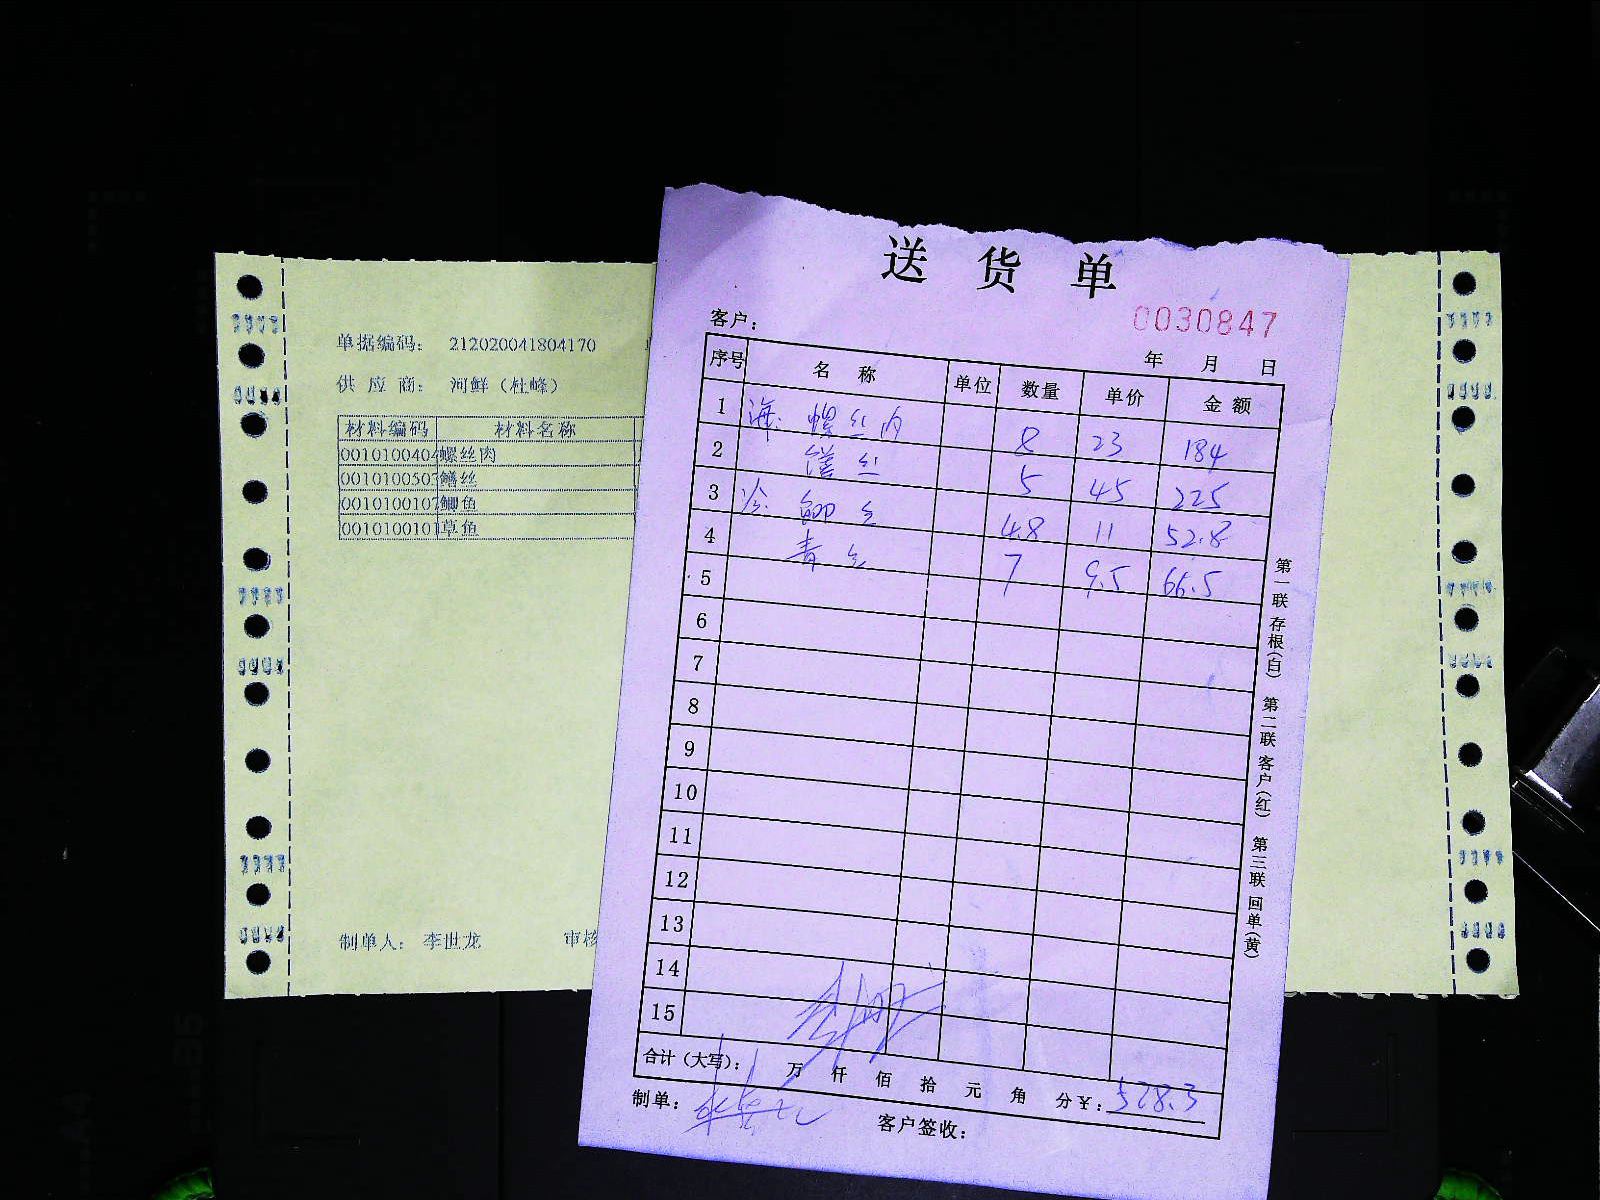 单据编码： 212020041804170
供 应 商： 河鲜（杜峰）
材料编码 材料名称
0010100404 螺丝肉
0010100503 鳝丝
0010100107 鲫鱼
0010100101 草鱼
制单人： 李世龙 审核
送 货 单
0030847
客户：
年 月 日
序号 名 称 单位 数量 单价 金 额
1 海 螺丝肉 8 23 184
2 丝 5 45 225
3 冷 鲫鱼 4.8 11 52.8
4 青鱼 7 9.5 66.5
5
6
7
8
9
10
11
12
13
14
15
合计（大写）： 万 仟 佰 拾 元 角 分 ¥：528.3
制单：
客户签收：
第一联 存根（白） 第二联 客户（红） 第三联 回单（黄）